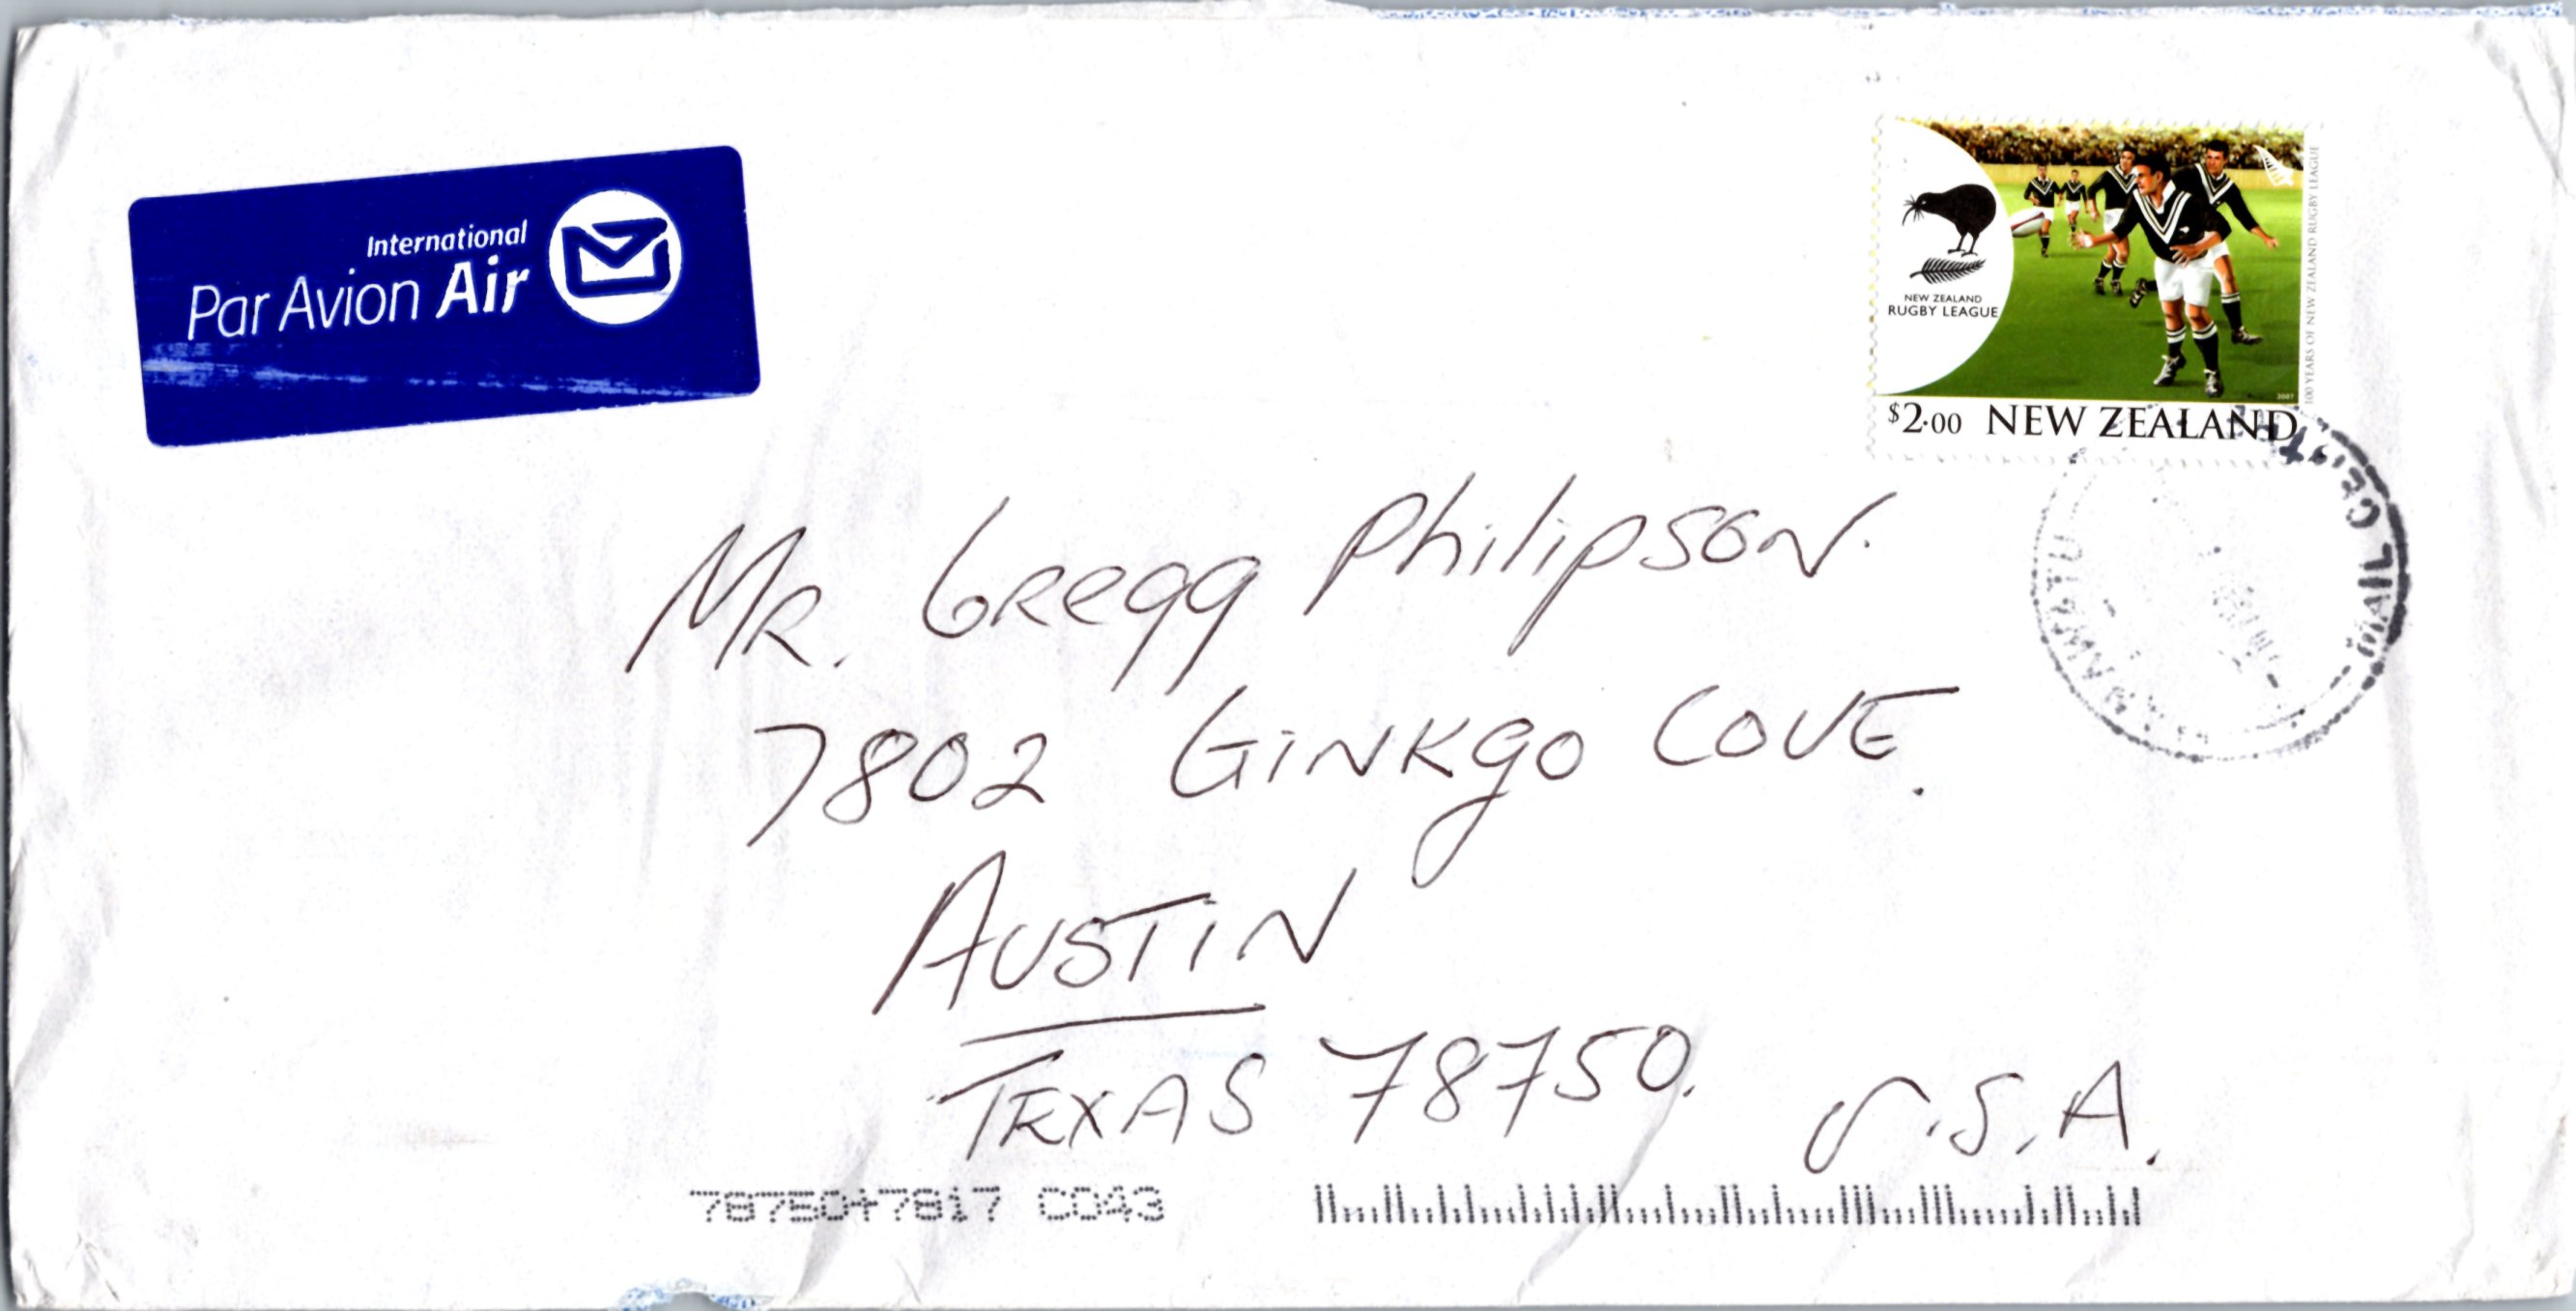 International
Par Avion Air
NEW ZEALAND
RUGBY LEAGUE
100 YEARS OF NEW ZEALAND RUGBY LEAGUE
2007
$2.00 NEW ZEALAND
MAIL
MR. Gregg Philipson.
7802 GiNKgo COVE.
AUSTiN
TEXAS 78750. U.S.A.
78750+7817 C043